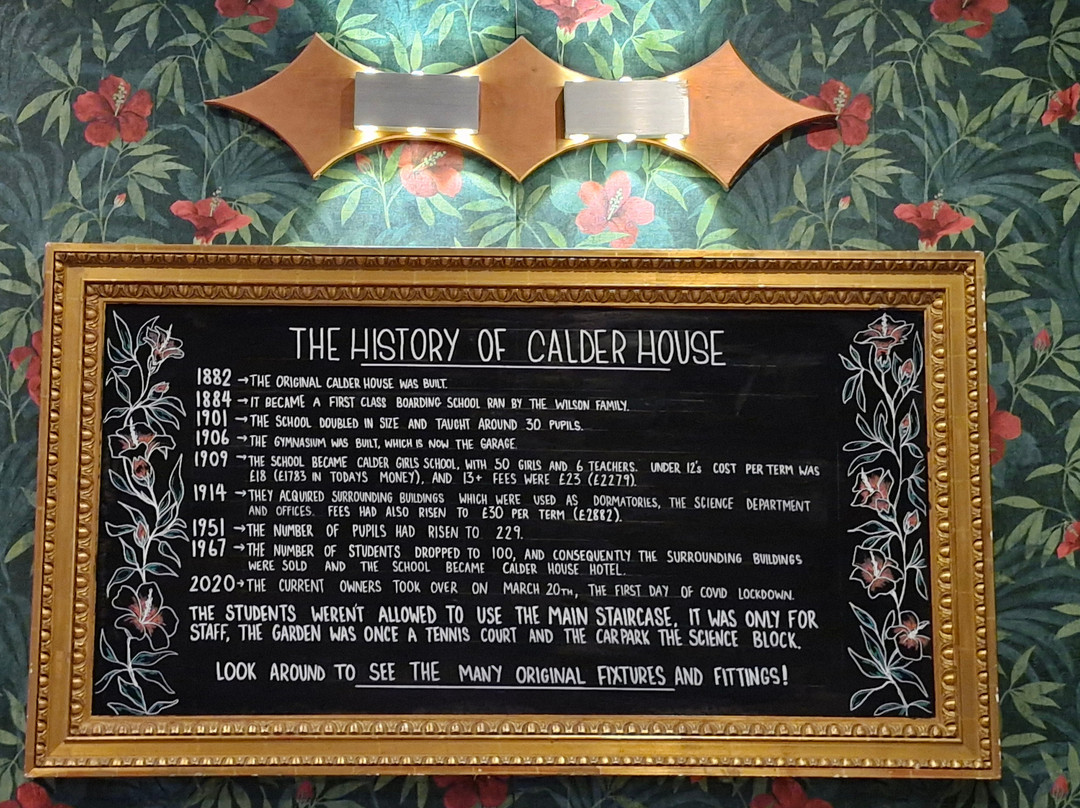 THE HISTORY OF CALDER HOUSE
1882 →THE ORIGINAL CALDER HOUSE WAS BUILT.
1884 →IT BECAME A FIRST CLASS BOARDING SCHOOL RAN BY THE WILSON FAMILY.
1901 →THE SCHOOL DOUBLED IN SIZE AND TAUGHT AROUND 30 PUPILS.
1906 →THE GYMNASIUM WAS BUILT, WHICH IS NOW THE GARAGE
1909 →THE SCHOOL BECAME CALDER GIRLS SCHOOL, WITH 50 GIRLS AND 6 TEACHERS. UNDER 12's COST PER TERM WAS
£18 (£1783 IN TODAYS MONEY), AND 13+ FEES WERE £23 (£2279).
1914 →THEY ACQUIRED SURROUNDING BUILDINGS WHICH WERE USED AS DORMATORIES, THE SCIENCE DEPARTMENT
AND OFFICES. FEES HAD ALSO RISEN TO £30 PER TERM (£2882).
1951 →THE NUMBER OF PUPILS HAD RISEN TO 229.
1967 →THE NUMBER OF STUDENTS DROPPED TO 100, AND CONSEQUENTLY THE SURROUNDING BUILDINGS
WERE SOLD AND THE SCHOOL BECAME CALDER HOUSE HOTEL.
2020→THE CURRENT OWNERS TOOK OVER ON MARCH 20TH, THE FIRST DAY OF COVID LOCKDOWN.
THE STUDENTS WEREN'T ALLOWED TO USE THE MAIN STAIRCASE, IT WAS ONLY FOR
STAFF, THE GARDEN WAS ONCE A TENNIS COURT AND THE CARPARK THE SCIENCE BLOCK.
LOOK AROUND TO SEE THE MANY ORIGINAL FIXTURES AND FITTINGS!